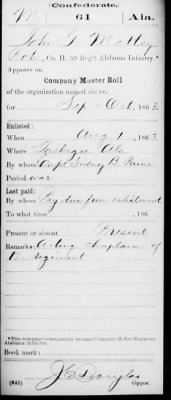 Confederate.
M 61 Ala.
John G Motley
Pvt, Co. H, 59 Reg't Alabama Infantry.*
Appears on
Company Muster Roll
of the organization named above,
for Sep & Oct, 1863.
Enlisted:
When Aug 1, 1863.
Where Tuskegee Ala
By whom Capt Sidney B Paine
Period war
Last paid:
By whom Pay due from enlistment
To what time , 186 .
Present or absent Present
Remarks: Acting chaplain of
the regiment
*This company subsequently became Company H, 61st Regiment
Alabama Infantry.
Book mark:
(642) Copyist.